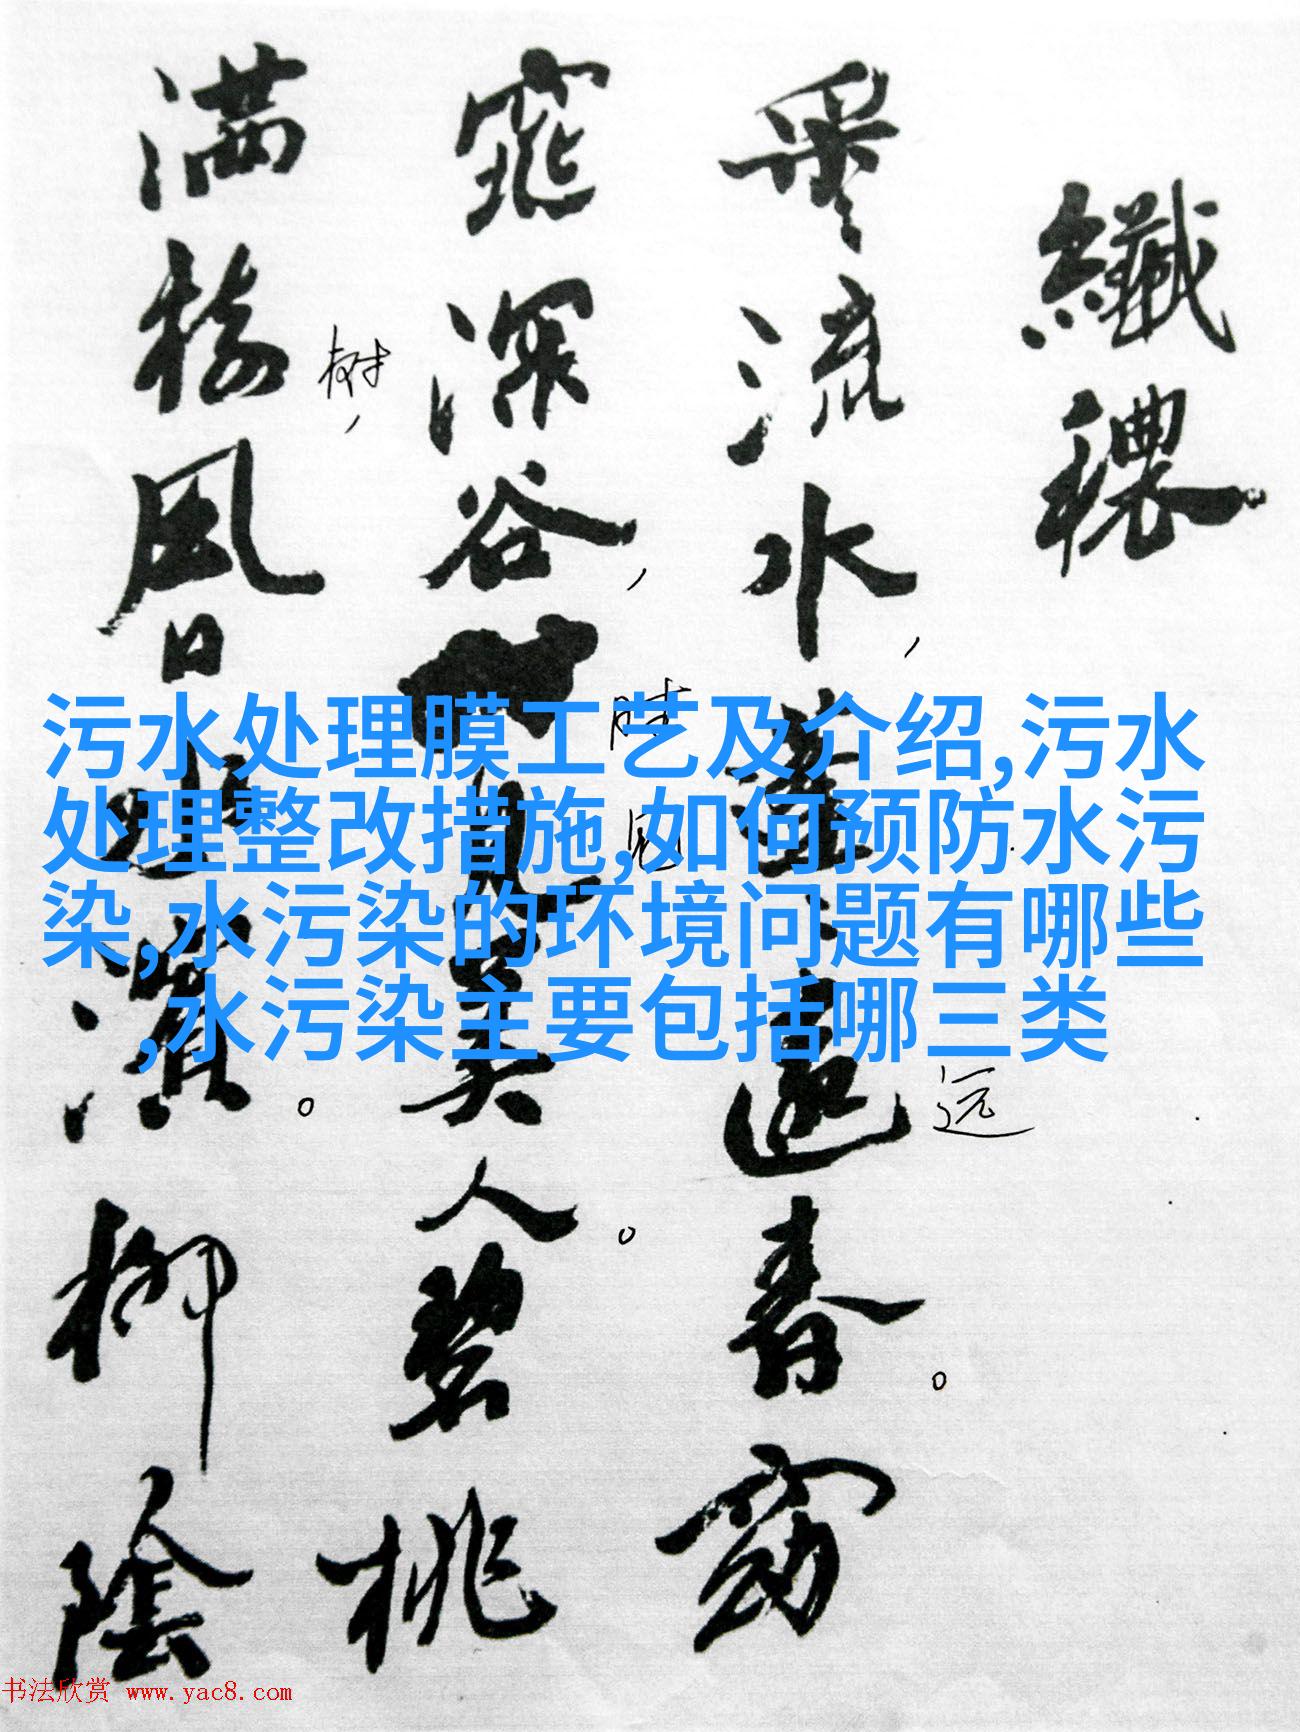 纖穠
采流水,蓬、遠春。窈
远
窕深谷,見美人。碧桃
时
见
满樹风日水濱。柳陰
树,
污水处理膜工艺及介绍,污水
处理整改措施,如何预防水污
染,水污染的环境问题有哪些
,水污染主要包括哪三类
书法欣赏 www.yac8.com